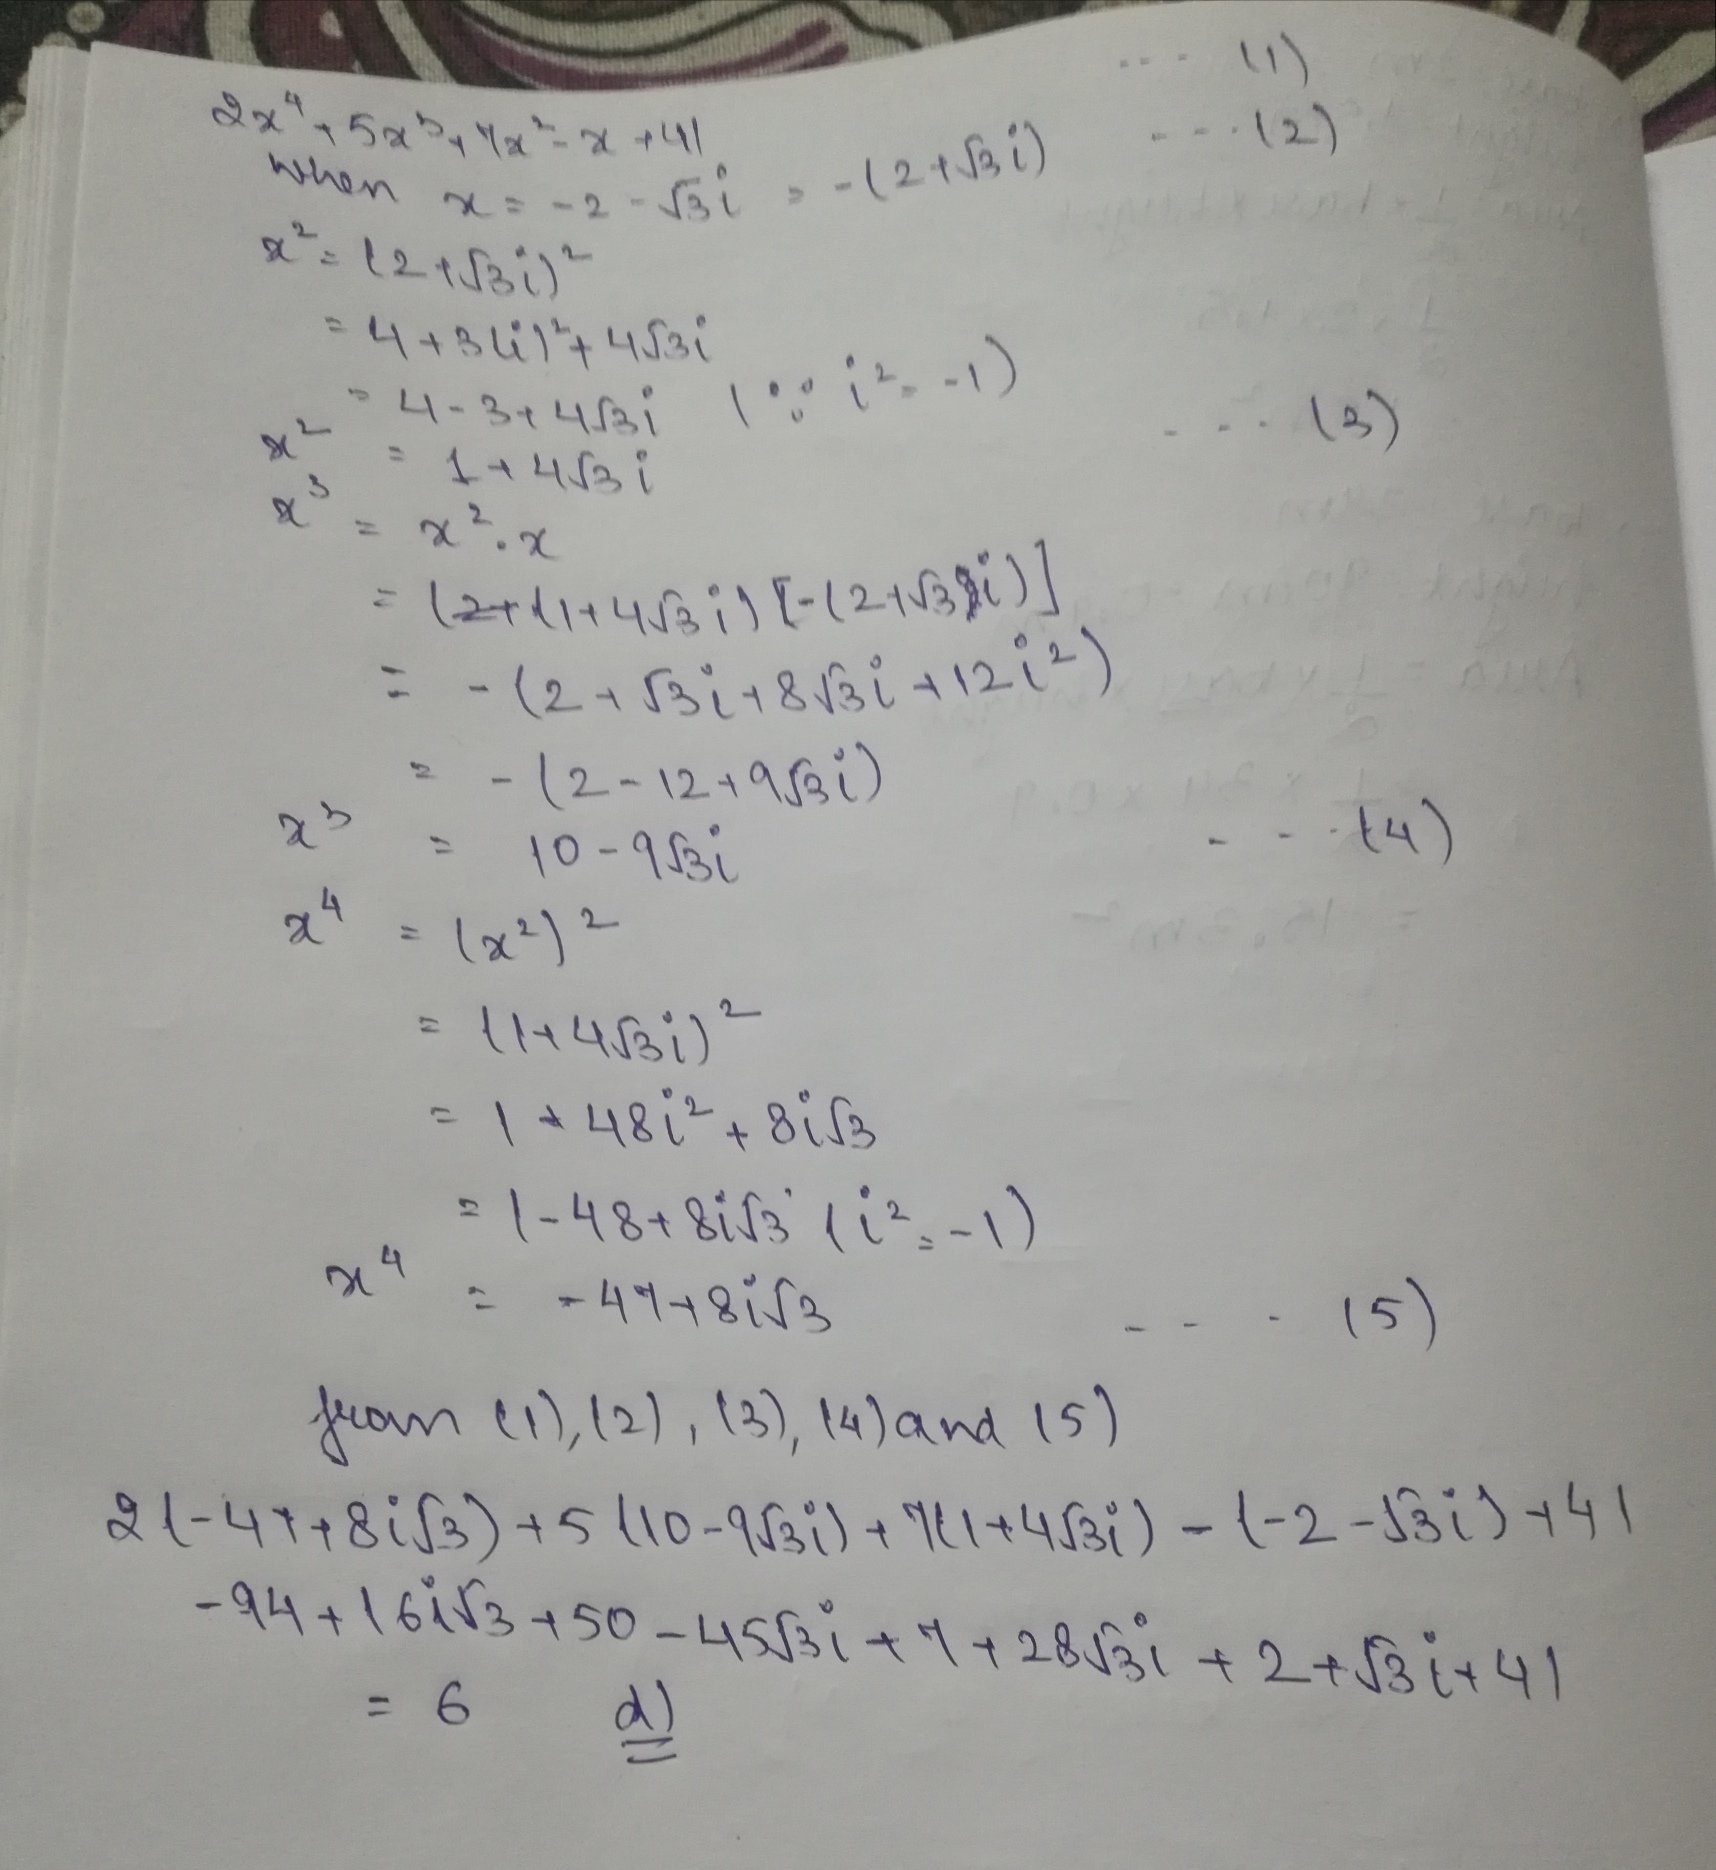 2x⁴+5x³+7x²-x+41 ---- (1)
when x = -2-√3i = -(2+√3i) ---- (2)
x² = (2+√3i)²
= 4+3(i)²+4√3i
= 4-3+4√3i (∵ i² = -1)
x² = 1+4√3i ---- (3)
x³ = x².x
= (1+4√3i)[-(2+√3i)]
= -(2+√3i+8√3i+12i²)
= -(2-12+9√3i)
x³ = 10-9√3i --- (4)
x⁴ = (x²)²
= (1+4√3i)²
= 1+48i²+8i√3
= 1-48+8i√3 (i² = -1)
x⁴ = -47+8i√3 --- (5)
from (1), (2), (3), (4) and (5)
2(-47+8i√3)+5(10-9√3i)+7(1+4√3i)-(-2-√3i)+41
-94+16i√3+50-45√3i+7+28√3i+2+√3i+41
= 6 d)